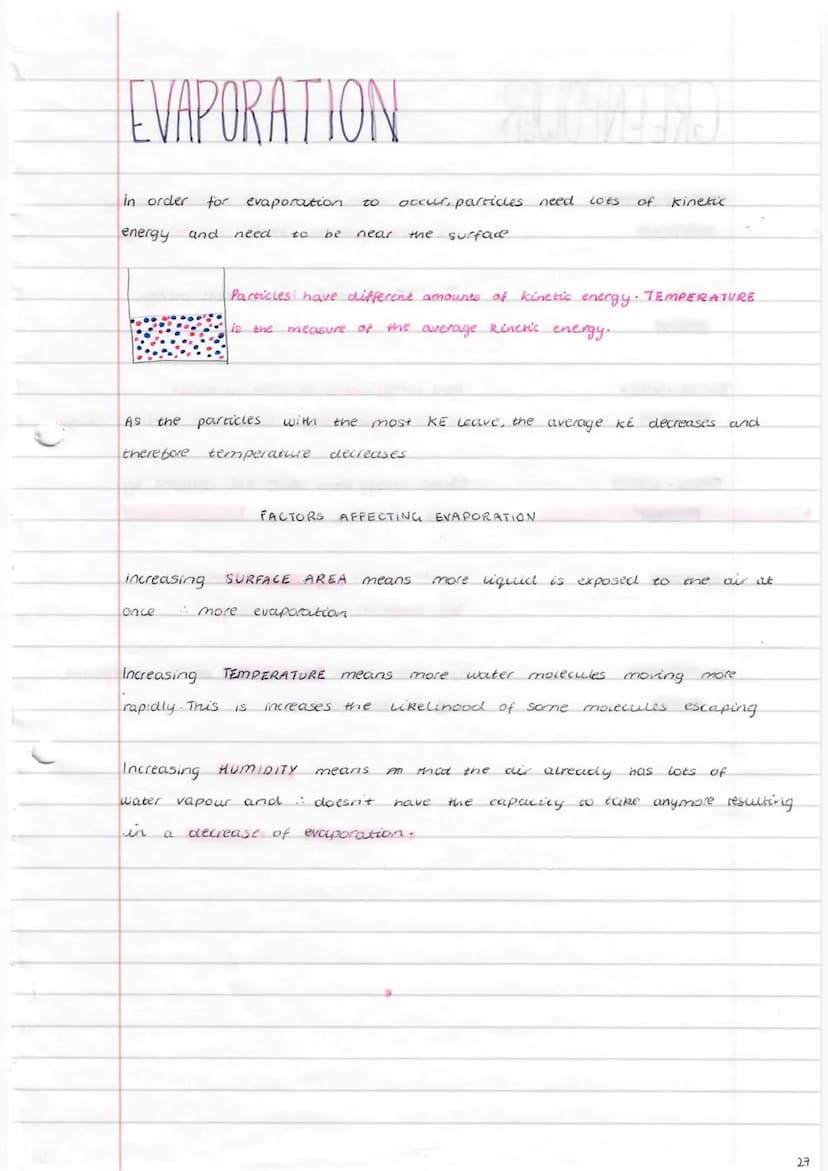 EVAPORATION
in order for evaporation to occur, particles need lots of kinetic
energy and need to be near the surface
Particles have different amounts of kinetic energy. TEMPERATURE
is the measure of the average kinetic energy.
As the particles with the most KE leave, the average KE decreases and
therefore temperature decreases
FACTORS AFFECTING EVAPORATION
increasing SURFACE AREA means more liquid is exposed to the air at
once ∴ more evaporation
Increasing TEMPERATURE means more water molecules moving more
rapidly. This is increases the likelihood of some molecules escaping
Increasing HUMIDITY means that the air already has lots of
water vapour and ∴ doesn't have the capacity to take anymore resulting
in a decrease of evaporation.
27